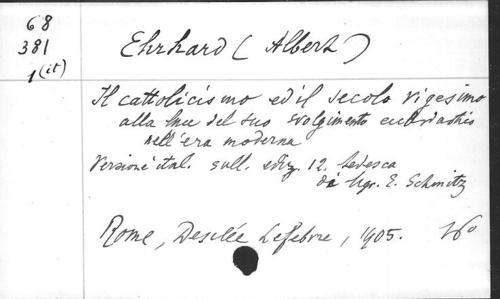 68
381
1 (it)
Ehrhard (Albert)
Il cattolicismo ed il secolo vigesimo
alla luce del suo svolgimento
nell'era moderna
Versione ital. sull. ediz. 12. tedesca
di Mgr. E. Schmitz
Rome, Desclée Lefebvre, 1905.